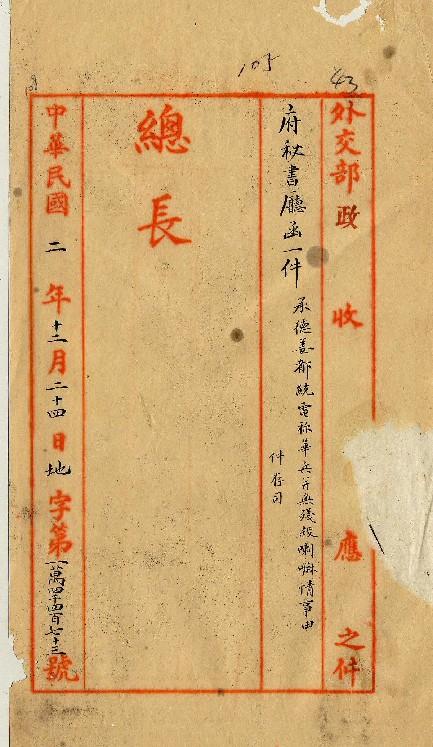 105
43
外交部政收應之件
府秘書廳函一件
承德姜都統電称華兵并無殘殺喇嘛情事由
件存司
總長
中華民國二年十二月二十四日地字第一萬四千四百七十三號